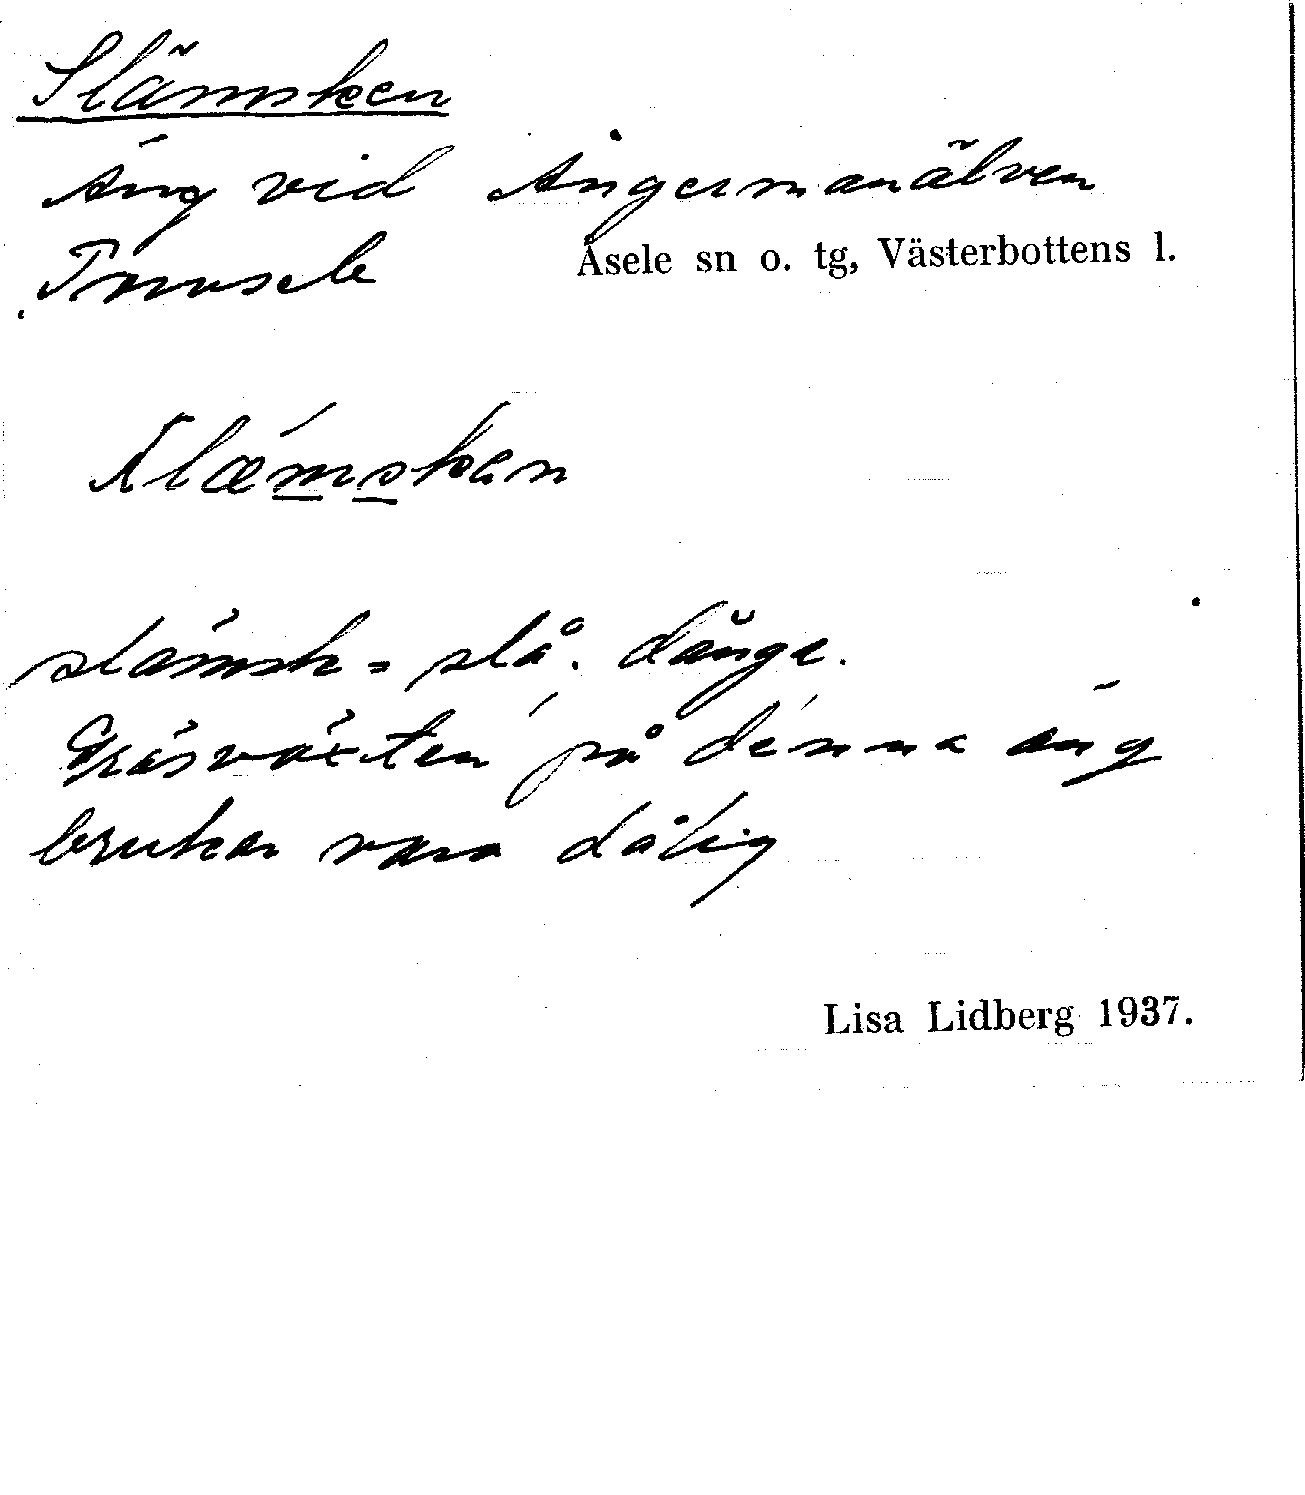 Slämsken
Äng vid Ångermanälven
Tnusele Åsele sn o. tg, Västerbottens l.
slämsk = slå. dänga.
Gräsväxten på denna äng
brukar vara dålig
Lisa Lidberg 1937.